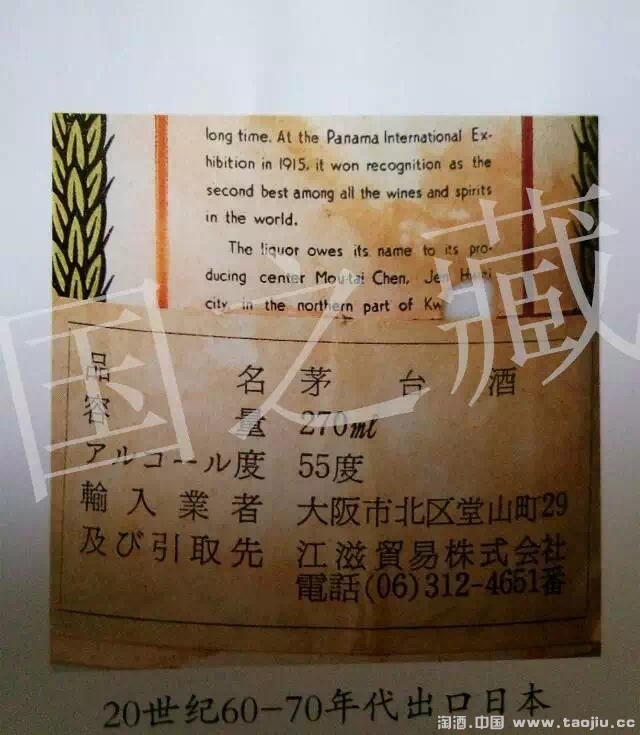 long time. At the Panama International Ex-
hibition in 1915, it won recognition as the
second best among all the wines and spirits
in the world.
The liquor owes its name to its pro-
ducing center Mou-tai Chen, Jen
city in the northern part of
品名 茅台酒
容量 270ml
アルコール度 55度
輸入業者 大阪市北区堂山町29
及び引取先 江滋貿易株式会社
電話(06)312-4651番
国之藏
20世纪60-70年代出口日本
淘酒.中国 www.taojiu.cc